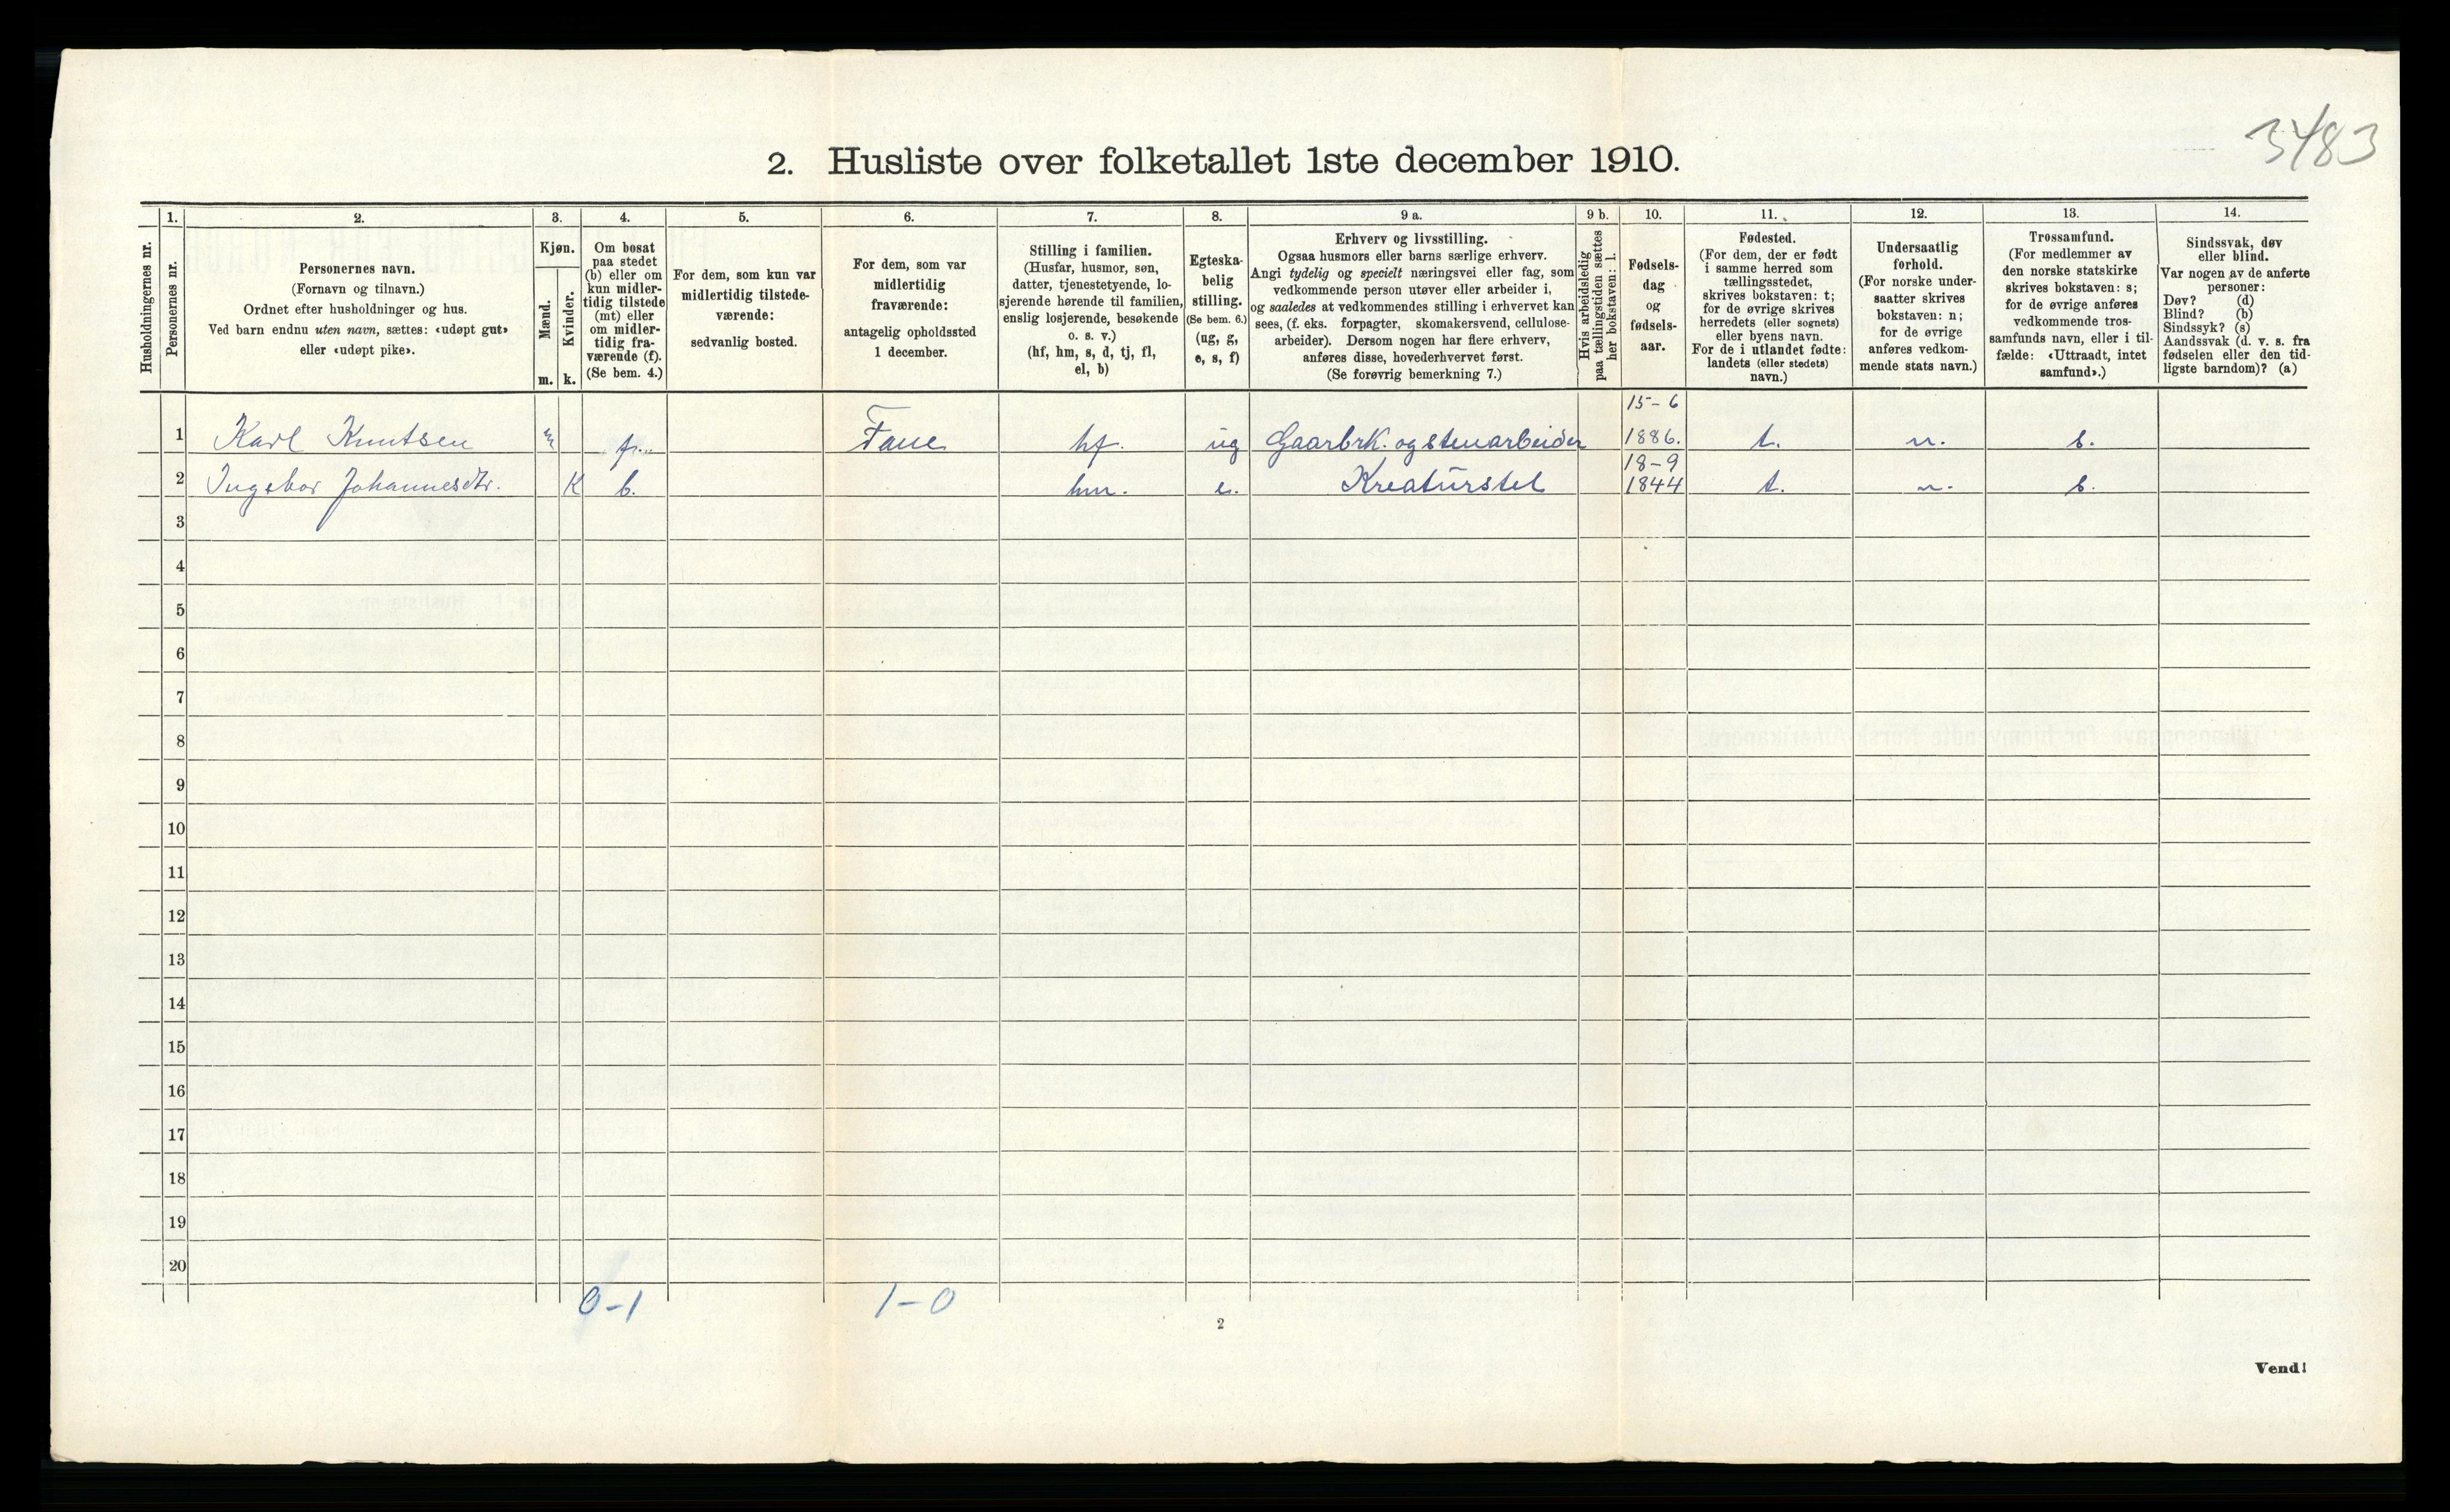 3483
2. Husliste over folketallet 1ste december 1910.
Husholdningernes nr.
1.
Personernes nr.
2.
Personernes navn.
(Fornavn og tilnavn.)
Ordnet efter husholdninger og hus.
Ved barn endnu uten navn, sættes: «udøpt gut»
eller «udøpt pike».
3.
Kjøn.
Mænd.
m.
Kvinder.
k.
4.
Om bosat
paa stedet
(b) eller om
kun midler-
tidig tilstede
(mt) eller
om midler-
tidig fra-
værende (f).
(Se bem. 4.)
5.
For dem, som kun var
midlertidig tilstede-
værende:
sedvanlig bosted.
6.
For dem, som var
midlertidig
fraværende:
antagelig opholdssted
1 december.
7.
Stilling i familien.
(Husfar, husmor, søn,
datter, tjenestetyende, lo-
sjerende hørende til familien,
enslig losjerende, besøkende
o. s. v.)
(hf, hm, s, d, tj, fl,
el, b)
8.
Egteska-
belig
stilling.
(Se bem. 6.)
(ug, g,
e, s, f)
9 a.
Erhverv og livsstilling.
Ogsaa husmors eller barns særlige erhverv.
Angi tydelig og specielt næringsvei eller fag, som
vedkommende person utøver eller arbeider i,
og saaledes at vedkommendes stilling i erhvervet kan
sees, (f. eks. forpagter, skomakersvend, cellulose-
arbeider). Dersom nogen har flere erhverv,
anføres disse, hovederhvervet først.
(Se forøvrig bemerkning 7.)
9 b.
Hvis arbeidsledig
paa tællingstiden sættes
her bokstaven: l.
10.
Fødsels-
dag
og
fødsels-
aar.
11.
Fødested.
(For dem, der er født
i samme herred som
tællingsstedet,
skrives bokstaven: t;
for de øvrige skrives
herredets (eller sognets)
eller byens navn.
For de i utlandet fødte:
landets (eller stedets)
navn.)
12.
Undersaatlig
forhold.
(For norske under-
saatter skrives
bokstaven: n;
for de øvrige
anføres vedkom-
mende stats navn.)
13.
Trossamfund.
(For medlemmer av
den norske statskirke
skrives bokstaven: s;
for de øvrige anføres
vedkommende tros-
samfunds navn, eller i til-
fælde: «Uttraadt, intet
samfund».)
14.
Sindssvak, døv
eller blind.
Var nogen av de anførte
personer:
Døv? (d)
Blind? (b)
Sindssyk? (s)
Aandssvak (d. v. s. fra
fødselen eller den tid-
ligste barndom)? (a)
1 Karl Knutsen m f. Fane hf. ug Gaarbrk. og stenarbeider 15-6 1886. t. n. s.
2 Ingebor Johannesdtr. K b. hm. e. Kreaturstel 18-9 1844 t. n. s.
3
4
5
6
7
8
9
10
11
12
13
14
15
16
17
18
19
20
0-1 1-0
2
Vend!